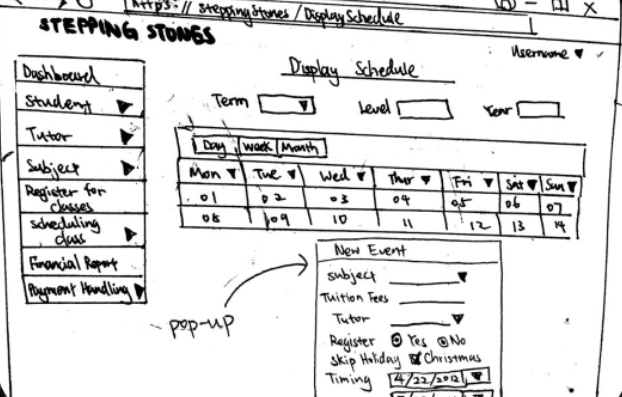 https://steppingstones/DisplaySchedule
STEPPING STONES
Username
Display Schedule
Dashboard
Student
Tutor
Subject
Register for classes
Scheduling class
Financial Report
Payment Handling
Term Level Year
Day Week Month
Mon Tue Wed Thur Fri Sat Sun
01 02 03 04 05 06 07
08 09 10 11 12 13 14
pop-up
New Event
Subject
Tuition Fees
Tutor
Register Yes No
Skip Holiday Christmas
Timing 4/22/2012